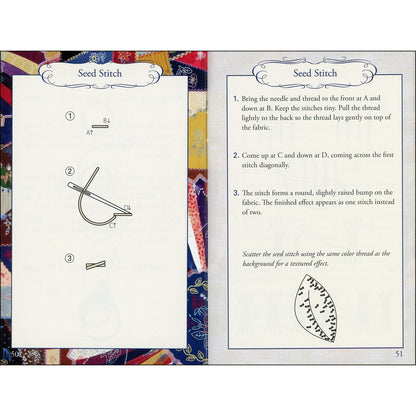 Seed Stitch
1
B↓
A↑
2
D↓
C↑
3
50
Seed Stitch
1. Bring the needle and thread to the front at A and
down at B. Keep the stitches tiny. Pull the thread
lightly to the back so the thread lays gently on top
of the fabric.
2. Come up at C and down at D, coming across the first
stitch diagonally.
3. The stitch forms a round, slightly raised bump on the
fabric. The finished effect appears as one stitch instead
of two.
Scatter the seed stitch using the same color thread as the
background for a textured effect.
51